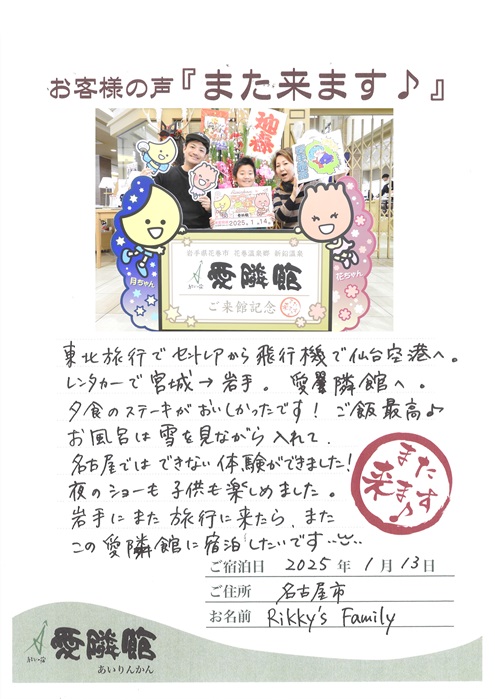 お客様の声『また来ます♪』
迎福
2025.1.14
岩手県花巻市 花巻温泉郷 新鉛温泉
愛隣館
ご来館記念
月ちゃん
花ちゃん
東北旅行でセントレアから飛行機で仙台空港へ。
レンタカーで宮城→岩手。愛隣館へ。
夕食のステーキがおいしかったです！ご飯最高♪
お風呂は雪を見ながら入れて、
名古屋ではできない体験ができました！
夜のショーも子供も楽しめました。
岩手にまた旅行に来たら、また
この愛隣館に宿泊したいです
また来ます♪
ご宿泊日 2025年1月13日
ご住所 名古屋市
お名前 Rikky's Family
愛隣館
あいりんかん